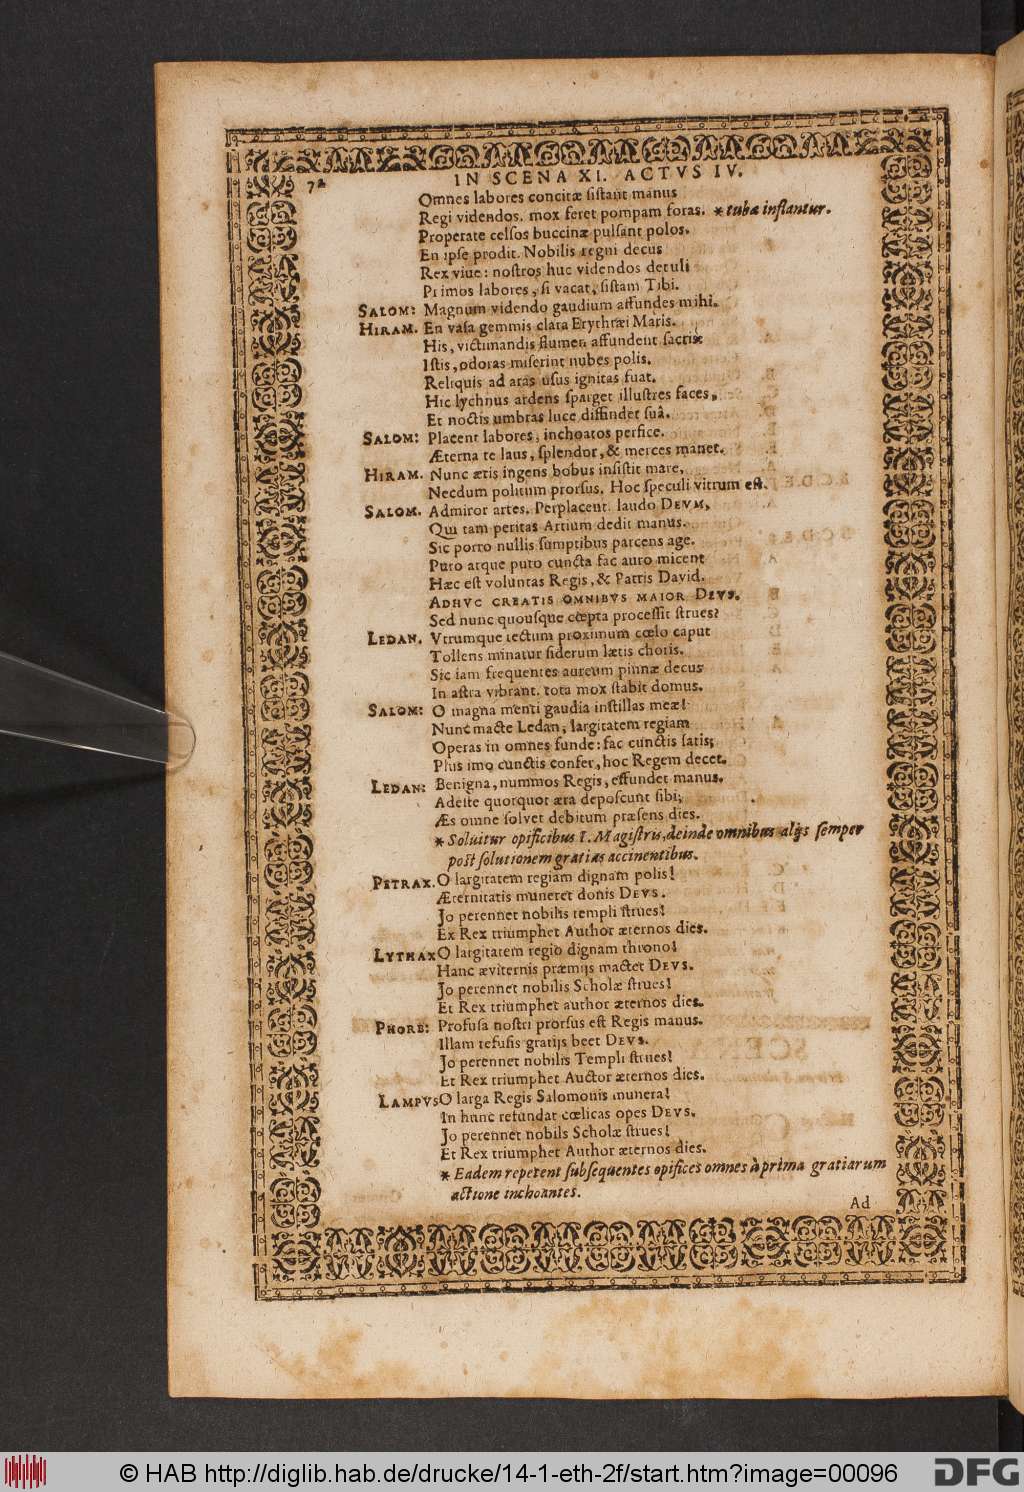 72
IN SCENA XI. ACTVS IV.
Omnes labores concitæ sistant manus
Regi videndos. mox feret pompam foras. * tubæ inflantur.
Properate celsos buccinæ pulsant polos.
En ipse prodit. Nobilis regni decus
Rex viue: nostros huc videndos detuli
Primos labores, si vacat, sistam Tibi.
SALOM: Magnum videndo gaudium affundes mihi.
HIRAM. En vasa gemmis clara Erythræi Maris.
His, victimandis flumen affundent sacris
Istis, odoras miserint nubes polis.
Reliquis ad aras usus ignitas fuat.
Hic lychnus ardens sparget illustres faces,
Et noctis umbras luce diffindet suâ.
SALOM: Placent labores, inchoatos perfice.
Æterna te laus, splendor, & merces manet.
HIRAM. Nunc æris ingens bobus insistit mare,
Necdum politum prorsus. Hoc speculi vitrum est.
SALOM. Admiror artes. Perplacent. laudo DEVM,
Qui tam peritas Artium dedit manus.
Sic porro nullis sumptibus parcens age.
Puto atque puto cuncta fac auro micent
Hæc est voluntas Regis, & Patris David.
ADHVC CREATIS OMNIBVS MAIOR DEVS.
Sed nunc quousque cœpta processit strues?
LEDAN. Vtrumque tectum proximum cœlo caput
Tollens minatur siderum lætis choris.
Sic iam frequentes aureum pinnæ decus
In astra vibrant. tota mox stabit domus.
SALOM: O magna menti gaudia instillas meæ!
Nunc macte Ledan, largitatem regiam
Operas in omnes funde: fac cunctis satis;
Plus imo cunctis confer, hoc Regem decet.
LEDAN: Benigna, nummos Regis, effundet manus.
Adeste quotquot æra deposcunt sibi;
Æs omne solvet debitum præsens dies.
* Soluitur opificibus I. Magistris, deinde omnibus alijs semper
post solutionem gratias accinentibus.
PETRAX. O largitatem regiam dignam polis!
Æternitatis muneret donis DEVS.
Jo perennet nobilis templi strues!
Ex Rex triumphet Author æternos dies.
LYTHAX O largitatem regio dignam throno!
Hanc æviternis præmijs mactet DEVS.
Jo perennet nobilis Scholæ strues!
Et Rex triumphet author æternos dies.
PHORB: Profusa nostri prorsus est Regis manus.
Illam refusis gratijs beet DEVS.
Jo perennet nobilis Templi strues!
Et Rex triumphet Auctor æternos dies.
LAMPVS O larga Regis Salomonis munera!
In hunc refundat cœlicas opes DEVS.
Jo perennet nobils Scholæ strues!
Et Rex triumphet Author æternos dies.
* Eadem repetent subsequentes opifices omnes à prima gratiarum
actione inchoantes.
Ad
© HAB http://diglib.hab.de/drucke/14-1-eth-2f/start.htm?image=00096
DFG